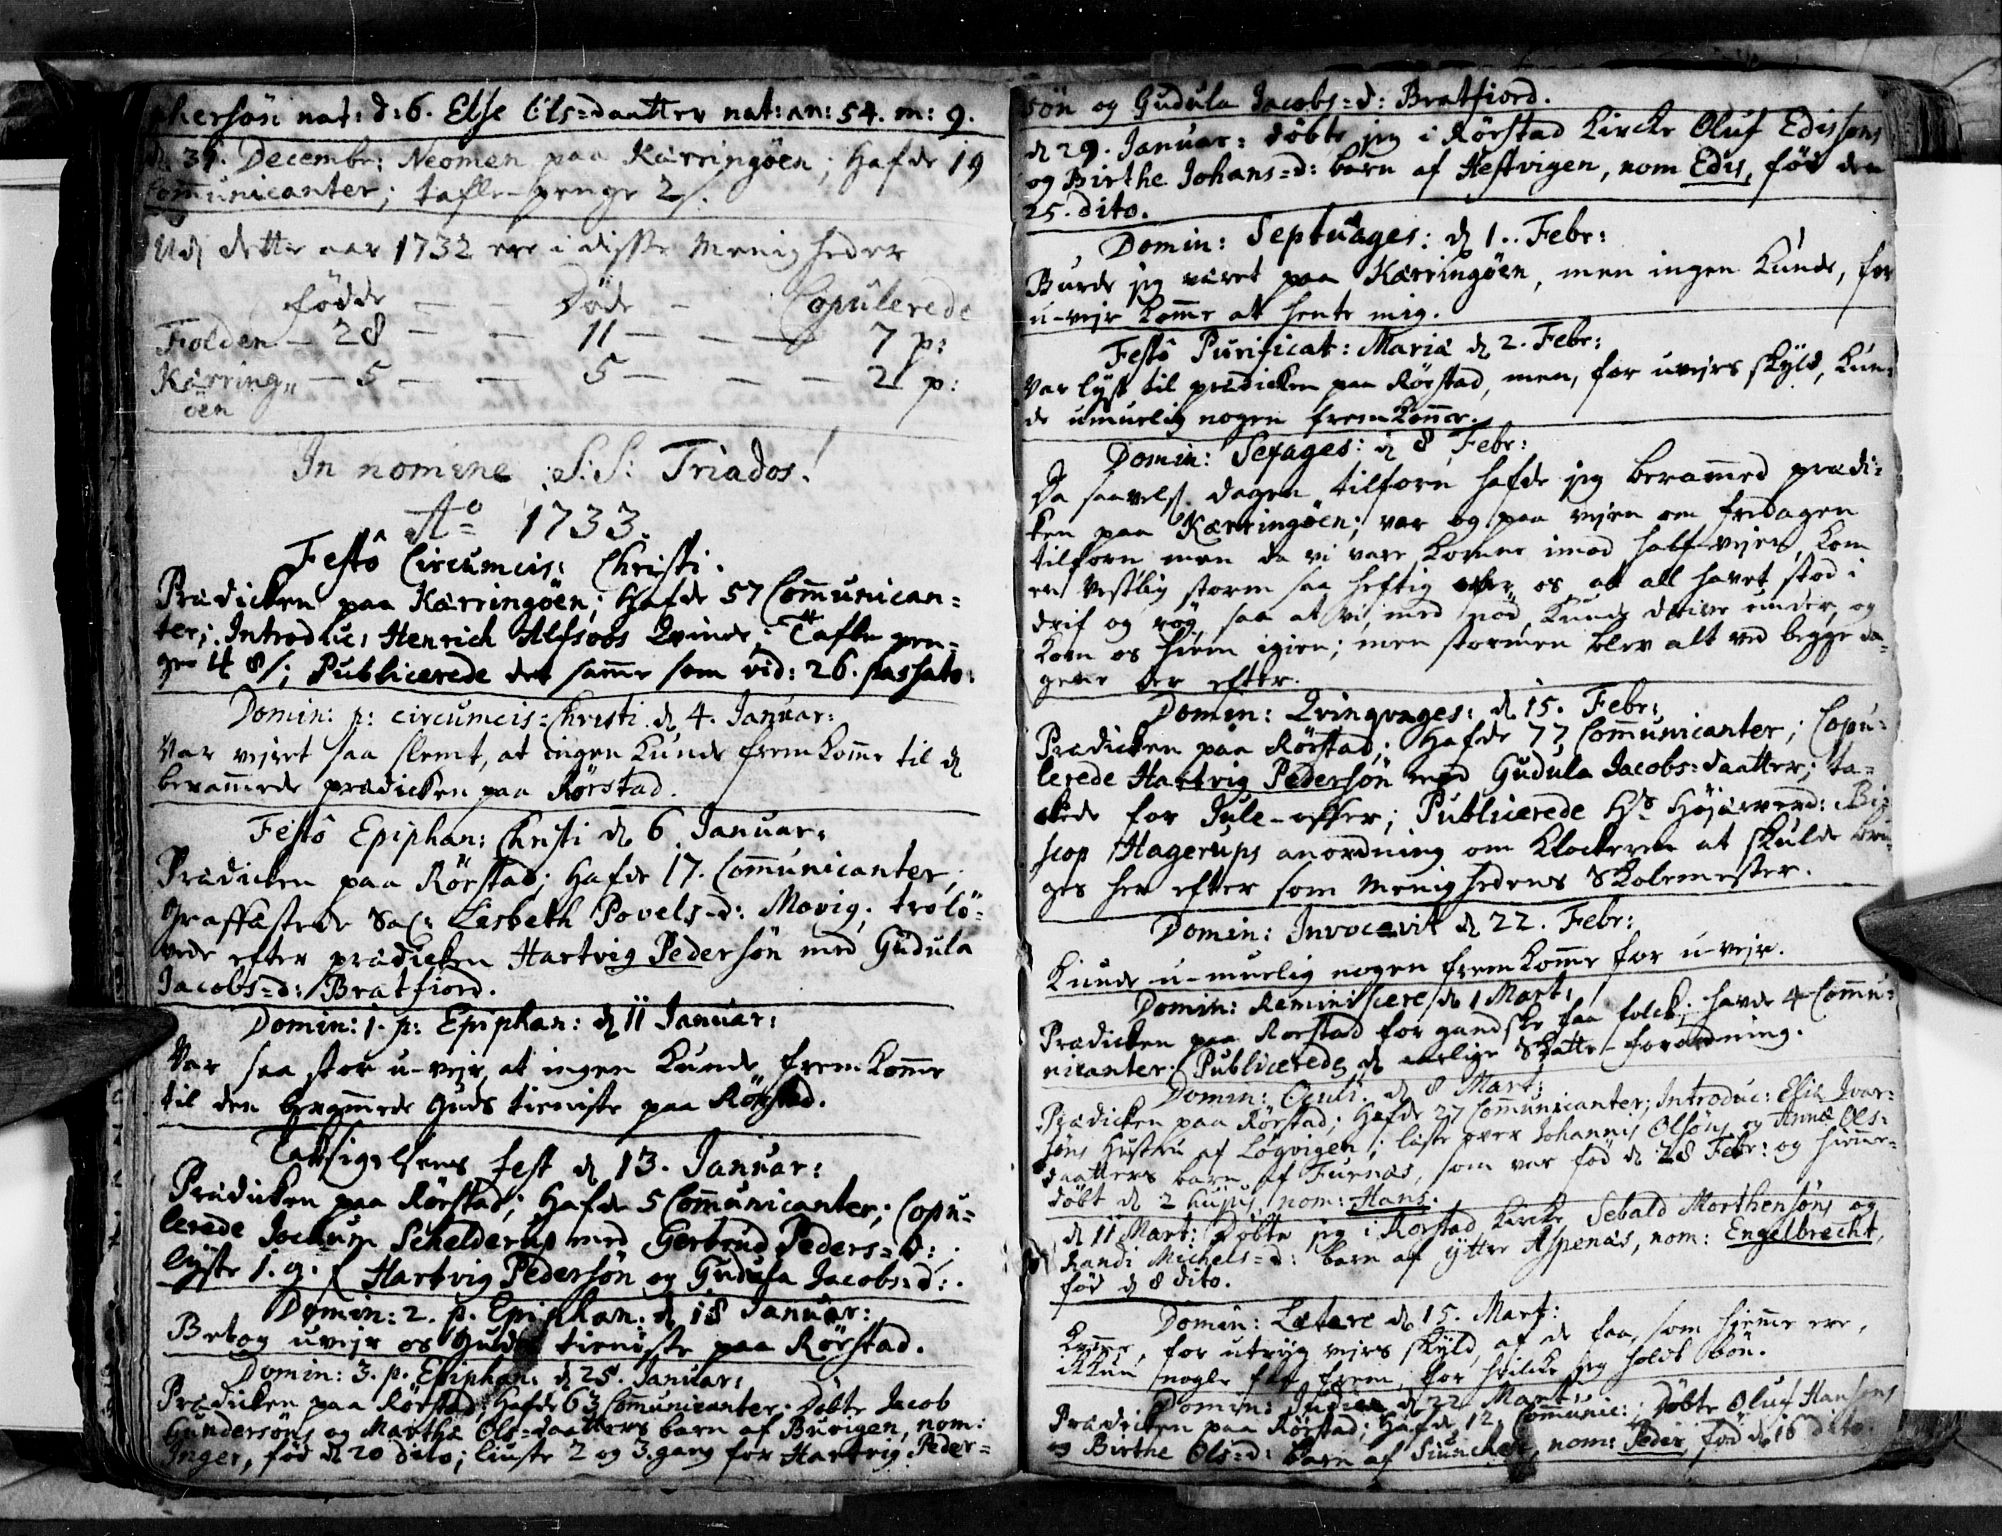 phersön nat: d: 6. Else Ols=daatter nat: an: 54. m: 9.
d 31. Decembr: Neomen paa Kærringöen; Hafde 19
Communicanter; tafle-penge 2 s.
Udj dette aar 1732 ere i disse Menigheder
födde — — Döde — Copulerede
Folden — 28 — — 11 — — — 7 p:
Kærring„ — 5 — — 5 — — — 2 p:
öen
In nomine S:S: Triados!
Ao 1733.
Festô Circumcis: Christi.
Prædicken paa Kærringöen; Hafde 57 Communican=
ter; Introduc: Henrich Alfsöns Qvinde; Tafle pen=
ge 4 8 s; Publicerede det samme som vid: 26. passato:
Domin: p: circumcis=Christi d 4. Januar:
Var vejret saa slemt, at ingen kunde fremkomme til d
berammede prædicken paa Rörstad.
Festô Epiphan: Christi d 6 Januar:
Prædicken paa Rörstad; Hafde 17. Communicanter;
Graffæstede Sal: Lisbeth Povels=d: Movig; trolö=
vede efter prædicken Hartvig Pedersön med Gudula
Jacobs=d: Bratfiord.
Domin: 1. p: Epiphan: d 11 Januar:
Var saa stor u-vejr at ingen kunde fremkomme
til den berammede Guds tieniste paa Rörstad.
Taksigelsens fest d 13. Januar:
Prædicken paa Rörstad; Hafde 5 Communicanter; Copu=
lerede Jochum Schelderup med Gertrud Peders=d:;
lyste 1. g. f Hartvig Pedersön og Gudula Jacobs=d:.
Domin: 2. p. Epiphan: d 18 Januar:
Betog uvejr os Guds tieniste paa Rörstad.
Domin: 3. p. Epiphan: d 25. Januar:
Prædicken paa Rörstad; Hafde 63 Communicanter. Döbte Jacob
Gundersöns og Marthe Ols=daatters barn af Buvigen, nom:
Inger, föd d 20 dito; liuste 2 og 3 gang for Hartvig Peder=
sön og Gudula Jacobs=d: Bratfiord.
d 29. Januar: döbte jeg i Rörstad Kircke Oluf Edissöns
og Birthe Johans=d: barn af Hestvigen, nom Edis, föd den
25. dito.
Domin: Septuages: d 1. Febr:
Burde jeg været paa Kærringöen, men ingen kunde, for
u-vejr komme at hente mig.
Festô Purificat: Mariæ d 2. Febr:
Var lyst til prædicken paa Rörstad, men, for uvejrs skyld, kun=
de umuelig nogen fremkomme.
Domin: Sexages: d 8 Febr:
Da saavelsom dagen tilforn hafde jeg berammed prædi=
ken paa Kærringöen; var og paa vejen om fredagen
tilforn men da vi vare komne imod half-vejen, kom
en vestlig storm saa heftig over os at all havet stod i
drif og rög, saa at vi, med nöd, kunde drive under, og
kom os hiem igien; men stormen blev alt ved begge da=
gene der efter.
Domin: Qvinqvages: d 15. Febr:
Prædicken paa Rörstad; Hafde 77 Communicanter; Copu=
lerede Hartvig Pedersön med Gudula Jacobs=daatter; ta=
ckede for Jule-offer; Publicerede Hs Höjærverd: Bi=
scop Hagerups anordning om Klockerne at skulde bru=
ges her efter som Menighedens Skolemester.
Domin: Invocavit d 22. Febr:
Kunde u-muelig nogen fremkomme for u-vejr.
Domin: Reminiscere d 1 Mart:
Prædicken paa Rörstad for gandske faa folck; havde 4 Commu=
nicanter. Publicerede d aarlige Skatte-forordning.
Domin: Oculi d 8 Mart:
Prædicken paa Rörstad; Hafde 27 Communicanter; Introduc: Elie Ivar=
söns Hustru af Lögvigen; läste over Johannis Olsöns og Anne Ols=
daatters barn af Furnæs, som var föd d 28 Febr: og hieme=
döbt d 2 hujus, nom: Hans.
d 11 Mart: Döbte jeg i Rörstad Kircke Sebald Morthensöns og
Randi Michels=d: barn af yttre Aspenæs, nom: Engelbrecht,
föd d 8 dito.
Domin: Lætare d 15. Mart:
Komme, for utryg vejrs skyld, af de faa, som hjemme ere,
ikkun nogle faa frem, for hvilcke jeg holdt bön.
Domin: Judica d 22 Mart:
Prædicken paa Rörstad; Hafde 12 Communic: Döbte Oluf Hansöns
og Birthe Ols=d: barn af, nom: Peder, föd d 18 dito.